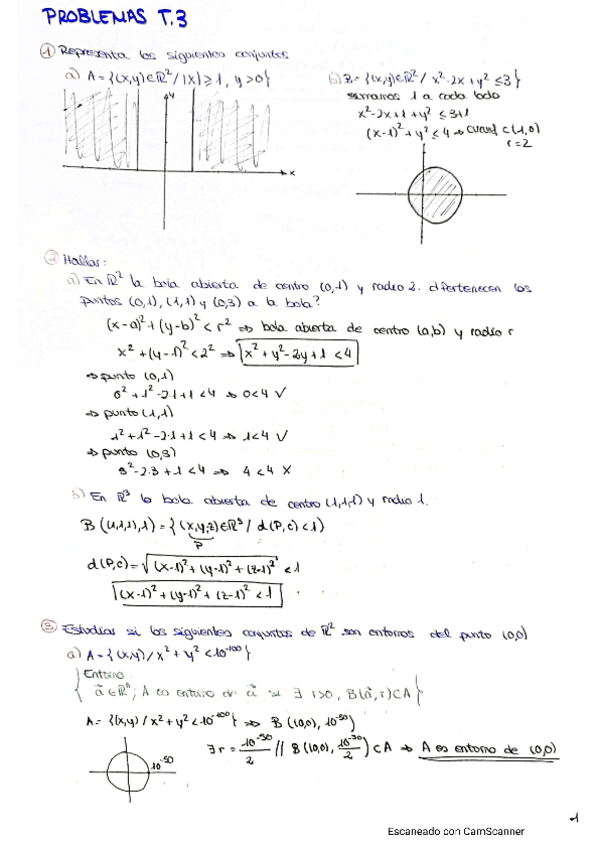 PROBLEMAS T.3
① Representa los siguientes conjuntos
a) A = {(x,y)∈ℝ² / |x| ≥ 1, y > 0}
y
x
b) B = {(x,y)∈ℝ² / x²-2x + y² ≤ 3}
sumamos 1 a cada lado
x²-2x+1+y² ≤ 3+1
(x-1)² + y² ≤ 4 ⇒ C(1,0)
r=2
② Hallar:
a) En ℝ² la bola abierta de centro (0,1) y radio 2. ¿Pertenecen los
puntos (0,1), (1,1) y (0,3) a la bola?
(x-a)² + (y-b)² < r² ⇒ bola abierta de centro (a,b) y radio r
x² + (y-1)² < 2² ⇒ x² + y² - 2y + 1 < 4
⇒ punto (0,1)
0² + 1² - 2·1 + 1 < 4 ⇒ 0 < 4 √
⇒ punto (1,1)
1² + 1² - 2·1 + 1 < 4 ⇒ 1 < 4 √
⇒ punto (0,3)
3² - 2·3 + 1 < 4 ⇒ 4 < 4 X
b) En ℝ³ la bola abierta de centro (1,1,1) y radio 1.
B((1,1,1),1) = {(x,y,z)∈ℝ³ / d(P,C) < 1}
P
d(P,C) = √(x-1)² + (y-1)² + (z-1)² < 1
(x-1)² + (y-1)² + (z-1)² < 1
③ Estudiar si los siguientes conjuntos de ℝ² son entornos del punto (0,0)
a) A = {(x,y) / x² + y² < 10⁻¹⁰⁰}
Entorno
a⃗ ∈ ℝⁿ; A es entorno de a⃗ si ∃ r>0, B(a⃗,r)⊂A
A = {(x,y) / x² + y² < 10⁻¹⁰⁰} ⇒ B((0,0), 10⁻⁵⁰)
∃ r = 10⁻⁵⁰/2 // B((0,0), 10⁻⁵⁰/2) ⊂ A ⇒ A es entorno de (0,0)
10⁻⁵⁰
1
Escaneado con CamScanner